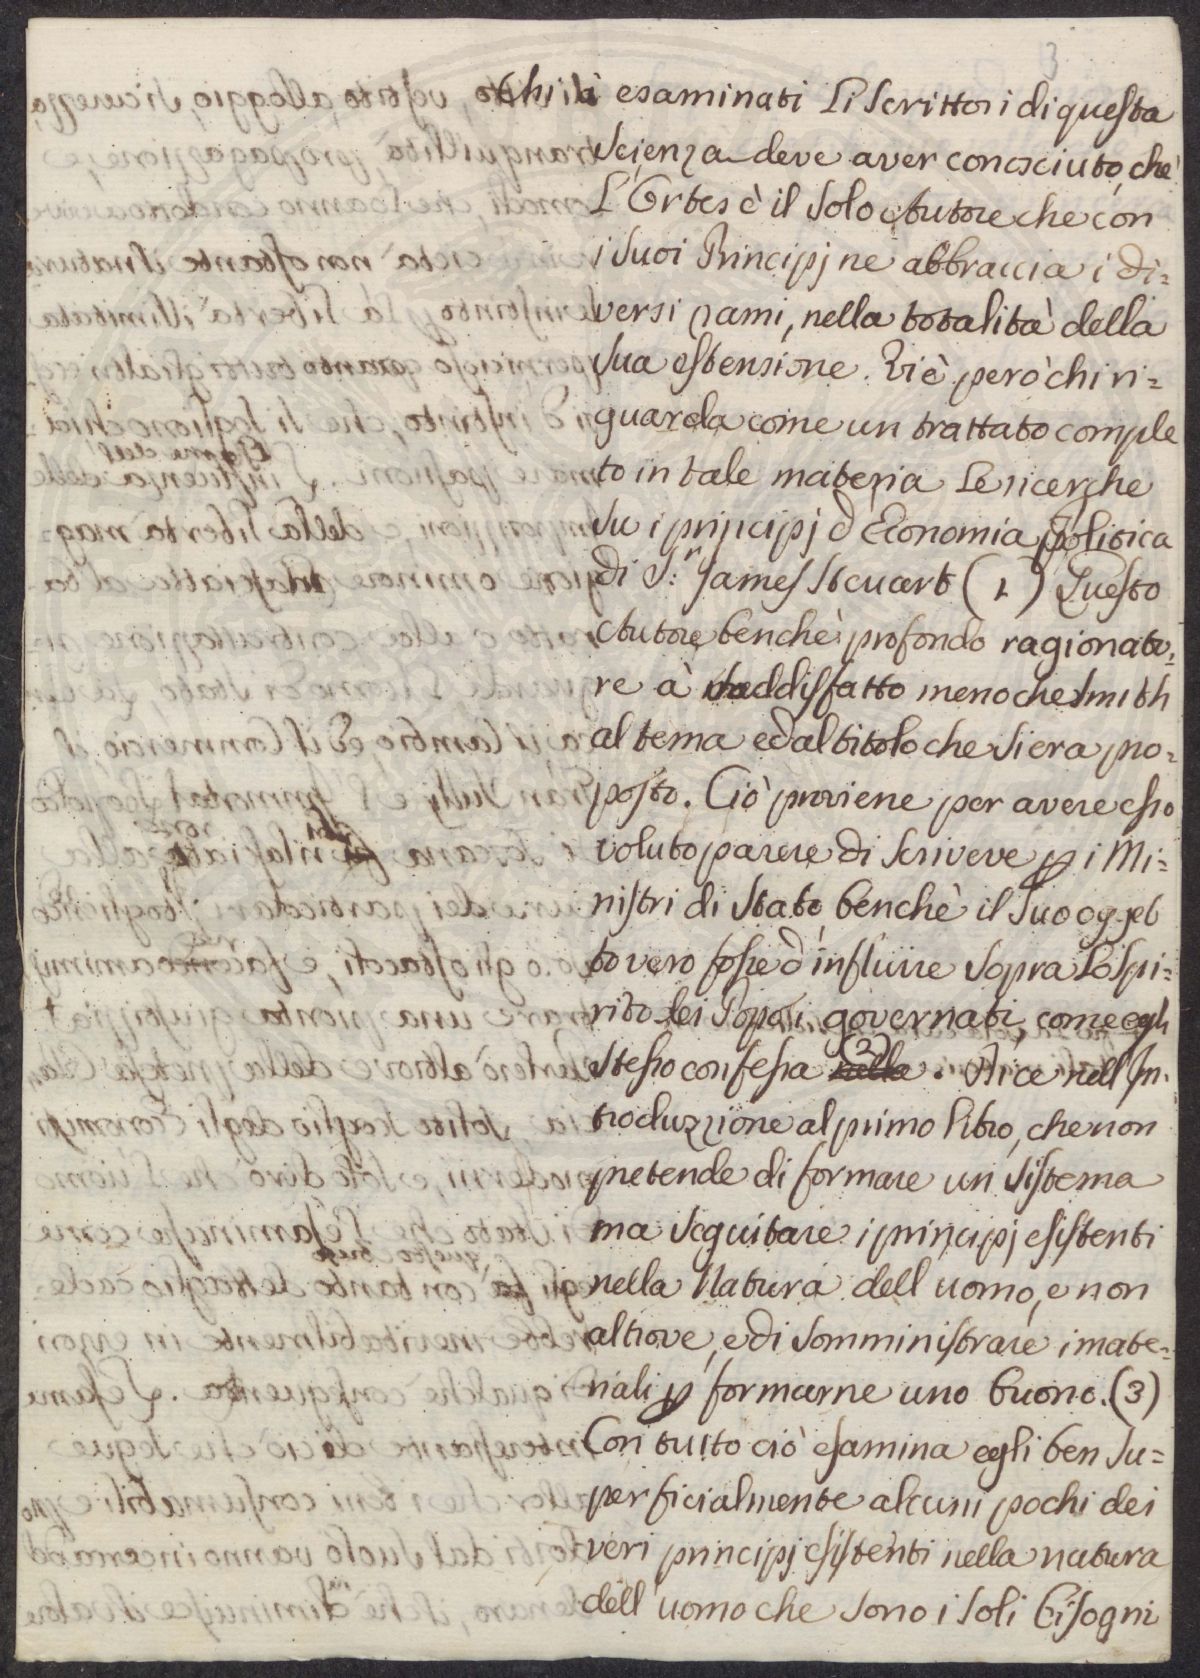 3
Chi à esaminati Li Scrittori di questa
Scienza deve aver conosciuto, che
L'Ortes è il solo Autore che con
i suoi Principj ne abbraccia i di=
versi rami, nella totalità della
sua estensione. Vi è però chi ri=
guarda come un trattato comple
to in tale materia Le ricerche
su i principj d'Economia politica
di S.r James Steuart (1) Questo
Autore benchè profondo ragionato=
re à soddisfatto meno che Smith
al tema ed al titolo che si era pro=
posto. Ciò proviene per avere esso
voluto parere di scrivere p i Mi=
nistri di Stato, benchè il suo ogget
to vero fosse d'influire sopra Lo Spi=
rito dei Popoli governati, come egli
stesso confessa nella (2). Dice nell'In=
troduzzione al primo libro, che non
pretende di formare un sistema
ma seguitare i principj esistenti
nella Natura dell'uomo, e non
altrove, e di somministrare i mate=
riali p formarne uno buono. (3)
Con tutto ciò esamina egli ben su=
perficialmente alcuni pochi dei
veri principj esistenti nella natura
dell'uomo che sono i soli bisogni